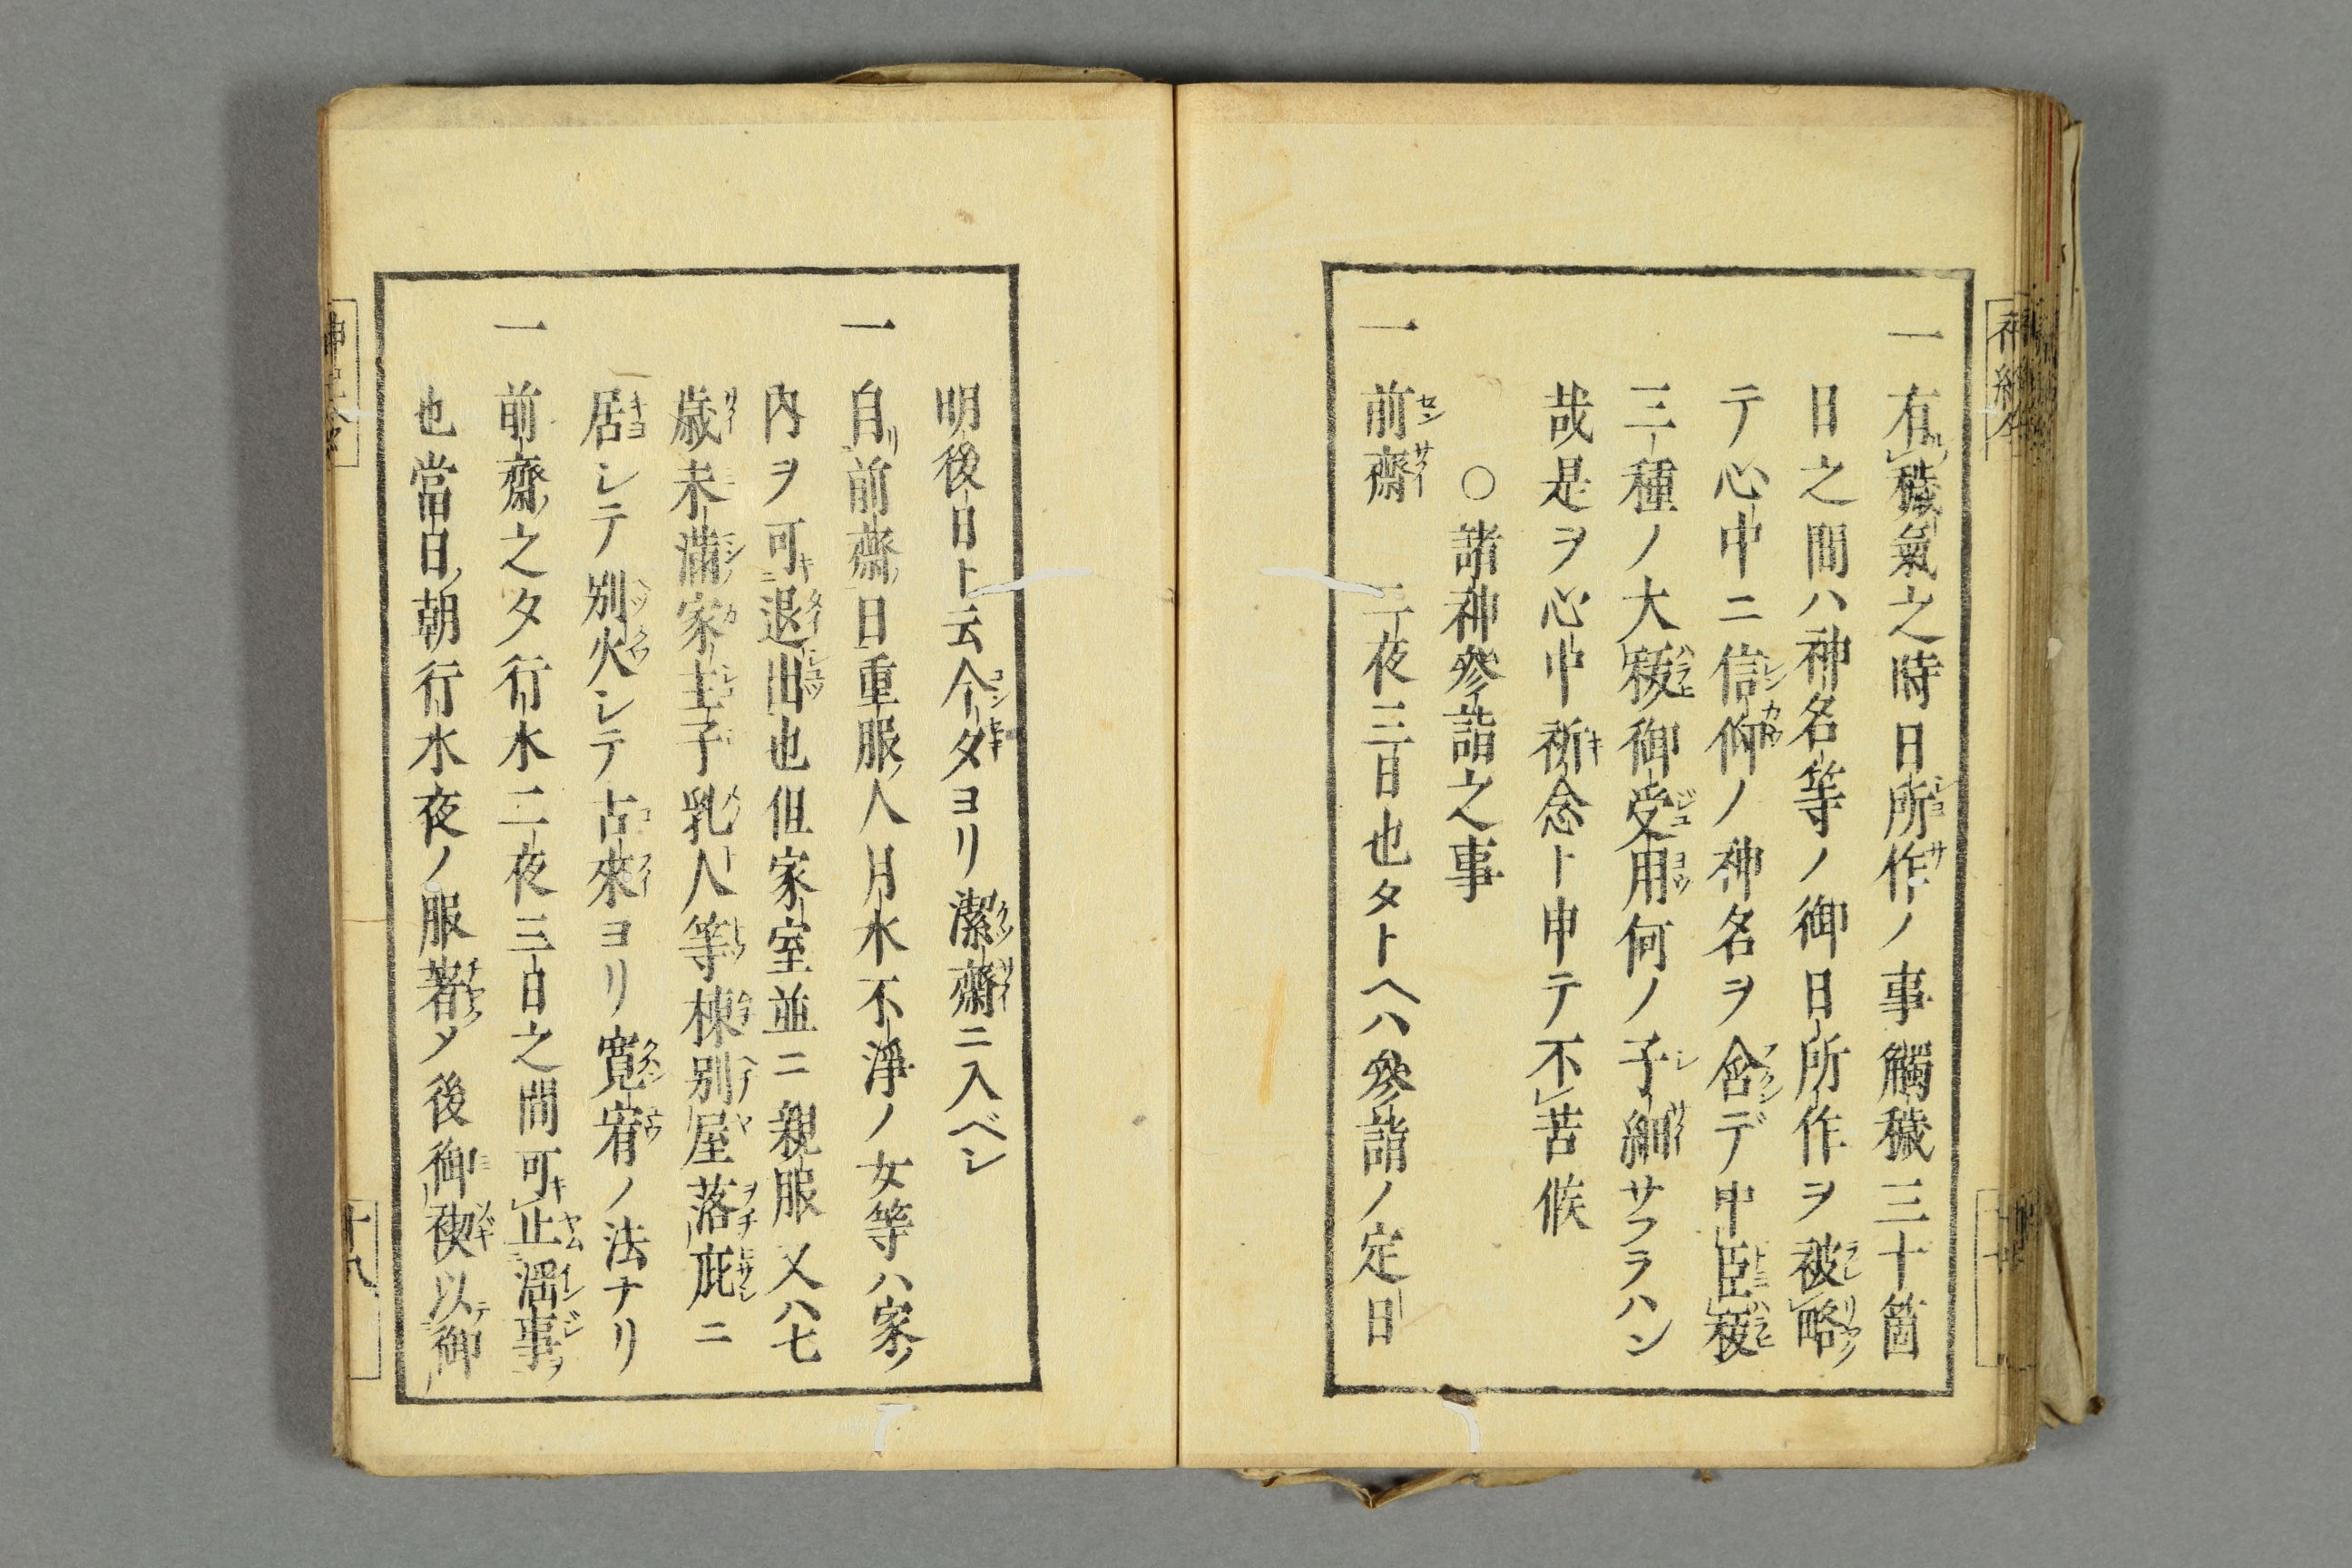 一 有穢氣之時日所作ノ事觸穢三十箇
日之間ハ神名等ノ御日所作ヲ被略
テ心中ニ信仰ノ神名ヲ含デ中臣秡
三種ノ大秡御受用何ノ子細サフラハン
哉是ヲ心中祈念ト申テ不苦候
○諸神參詣之事
一 前齋 二夜三日也タトヘハ參詣ノ定日
明後日ト云今夕ヨリ潔齋ニ入ベシ
一 自前齋日重服人月水不淨ノ女等ハ家ノ
內ヲ可退出也但家室並ニ親服又八七
歲未滿家主子乳人等棟別屋落庇ニ
居シテ別火シテ古來ヨリ寬宥ノ法ナリ
一 前齋之夕行水二夜三日之間可止滛事
也當日朝行水夜ノ服著メ後御禊以御
十八